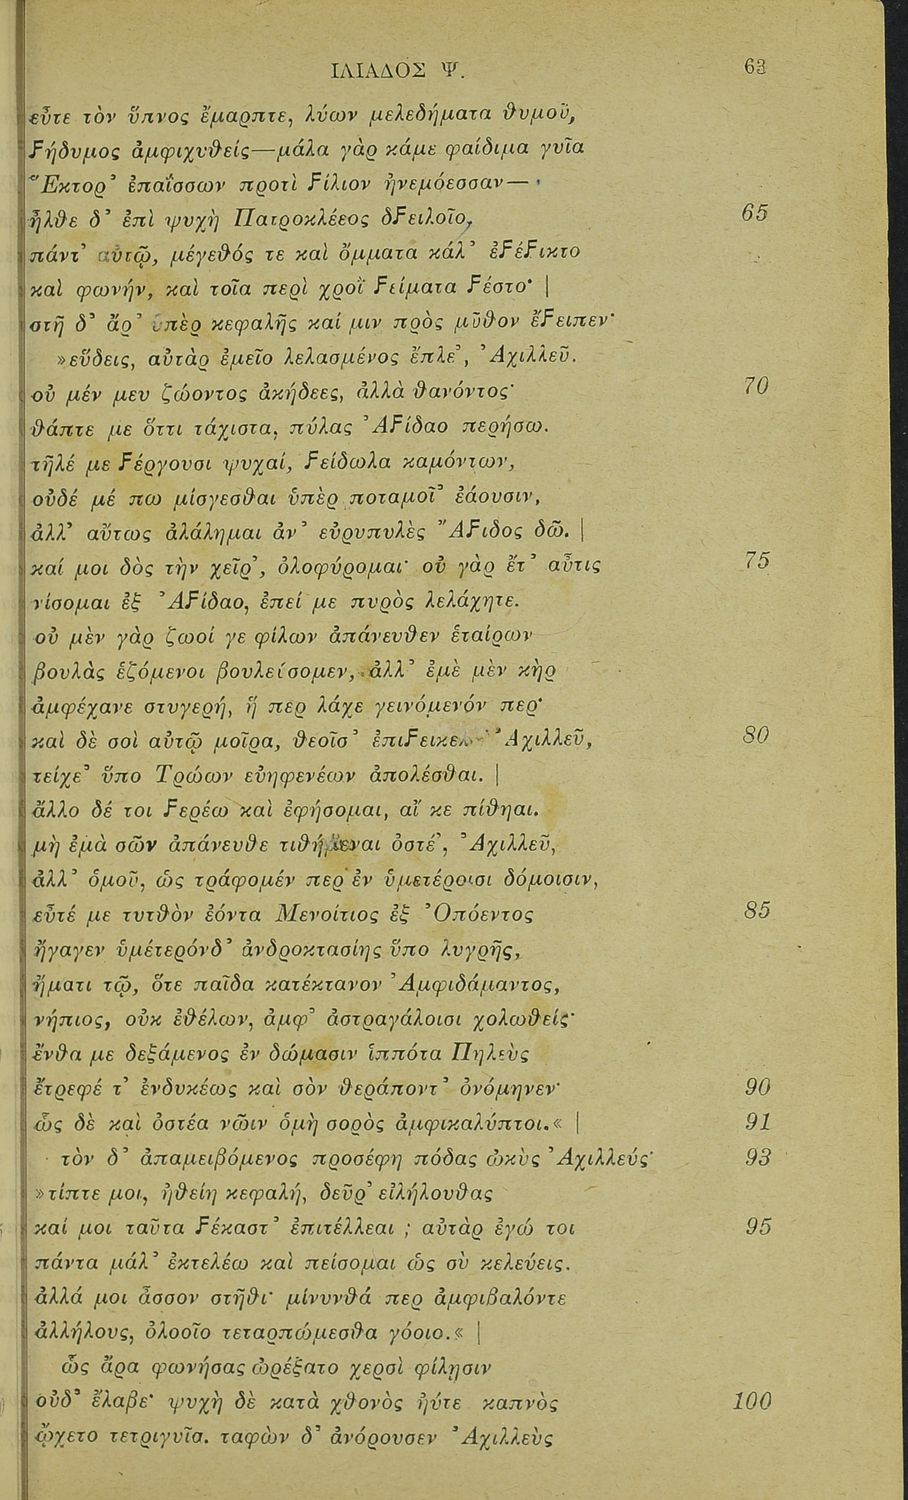 ΙΛΙΑΔΟΣ Ψ. 63
εὖτε τὸν ὕπνος ἔμαρπτε, λύων μελεδήματα θυμοῦ,
Ϝήδυμος ἀμφιχυθείς—μάλα γὰρ κάμε φαίδιμα γυῖα
Ἕκτορ᾽ ἐπαΐσσων προτὶ Ϝίλιον ἠνεμόεσσαν—
ἦλθε δ᾽ ἐπὶ ψυχὴ Πατροκλέεος δϜειλοῖο, 65
πάντ᾽ αὐτῷ, μέγεθός τε καὶ ὄμματα κάλ᾽ ἐϜέϜικτο
καὶ φωνήν, καὶ τοῖα περὶ χροῒ Ϝείματα Ϝέστο· |
στῆ δ᾽ ἄρ᾽ ὑπὲρ κεφαλῆς καί μιν πρὸς μῦθον ἔϜειπεν·
»εὕδεις, αὐτὰρ ἐμεῖο λελασμένος ἔπλε᾽, Ἀχιλλεῦ.
οὐ μέν μευ ζώοντος ἀκήδεες, ἀλλὰ θανόντος· 70
θάπτε με ὅττι τάχιστα, πύλας ἈϜίδαο περήσω.
τῆλέ με Ϝέργουσι ψυχαί, Ϝείδωλα καμόντων,
οὐδέ μέ πω μίσγεσθαι ὑπὲρ ποταμοῖ᾽ ἐάουσιν,
ἀλλ᾽ αὔτως ἀλάλημαι ἀν᾽ εὐρυπυλὲς ἌϜιδος δῶ. |
καί μοι δὸς τὴν χεῖρ᾽, ὀλοφύρομαι· οὐ γὰρ ἔτ᾽ αὖτις 75
νίσομαι ἐξ ἈϜίδαο, ἐπεί με πυρὸς λελάχητε.
οὐ μὲν γὰρ ζωοί γε φίλων ἀπάνευθεν ἑταίρων
βουλὰς ἑζόμενοι βουλεύσομεν, ἀλλ᾽ ἐμὲ μὲν κὴρ
ἀμφέχανε στυγερή, ἥ περ λάχε γεινόμενόν περ·
καὶ δὲ σοὶ αὐτῷ μοῖρα, θεοῖσ᾽ ἐπιϜείκελ᾽ Ἀχιλλεῦ, 80
τείχε᾽ ὕπο Τρώων εὐηφενέων ἀπολέσθαι. |
ἄλλο δέ τοι Ϝερέω καὶ ἐφήσομαι, αἴ κε πίθηαι.
μὴ ἐμὰ σῶν ἀπάνευθε τιθήμεναι ὀστέ᾽, Ἀχιλλεῦ,
ἀλλ᾽ ὁμοῦ, ὡς τράφομέν περ ἐν ὑμετέροισι δόμοισιν,
εὖτέ με τυτθὸν ἐόντα Μενοίτιος ἐξ Ὀπόεντος 85
ἤγαγεν ὑμέτερόνδ᾽ ἀνδροκτασίης ὕπο λυγρῆς,
ἤματι τῷ, ὅτε παῖδα κατέκτανον Ἀμφιδάμαντος,
νήπιος, οὐκ ἐθέλων, ἀμφ᾽ ἀστραγάλοισι χολωθείς·
ἔνθα με δεξάμενος ἐν δώμασιν ἱππότα Πηλεὺς
ἔτρεφέ τ᾽ ἐνδυκέως καὶ σὸν θεράποντ᾽ ὀνόμηνεν· 90
ὣς δὲ καὶ ὀστέα νῶιν ὁμὴ σορὸς ἀμφικαλύπτοι.« | 91
τὸν δ᾽ ἀπαμειβόμενος προσέφη πόδας ὠκὺς Ἀχιλλεύς· 93
»τίπτε μοι, ἠθείη κεφαλή, δεῦρ᾽ εἰλήλουθας
καί μοι ταῦτα Ϝέκαστ᾽ ἐπιτέλλεαι ; αὐτὰρ ἐγώ τοι 95
πάντα μάλ᾽ ἐκτελέω καὶ πείσομαι ὡς σὺ κελεύεις.
ἀλλά μοι ἆσσον στῆθι· μίνυνθά περ ἀμφιβαλόντε
ἀλλήλους, ὀλοοῖο τεταρπώμεσθα γόοιο.« |
ὣς ἄρα φωνήσας ὠρέξατο χερσὶ φίλῃσιν
οὐδ᾽ ἔλαβε· ψυχὴ δὲ κατὰ χθονὸς ἠύτε καπνὸς 100
ᾤχετο τετριγυῖα. ταφὼν δ᾽ ἀνόρουσεν Ἀχιλλεὺς